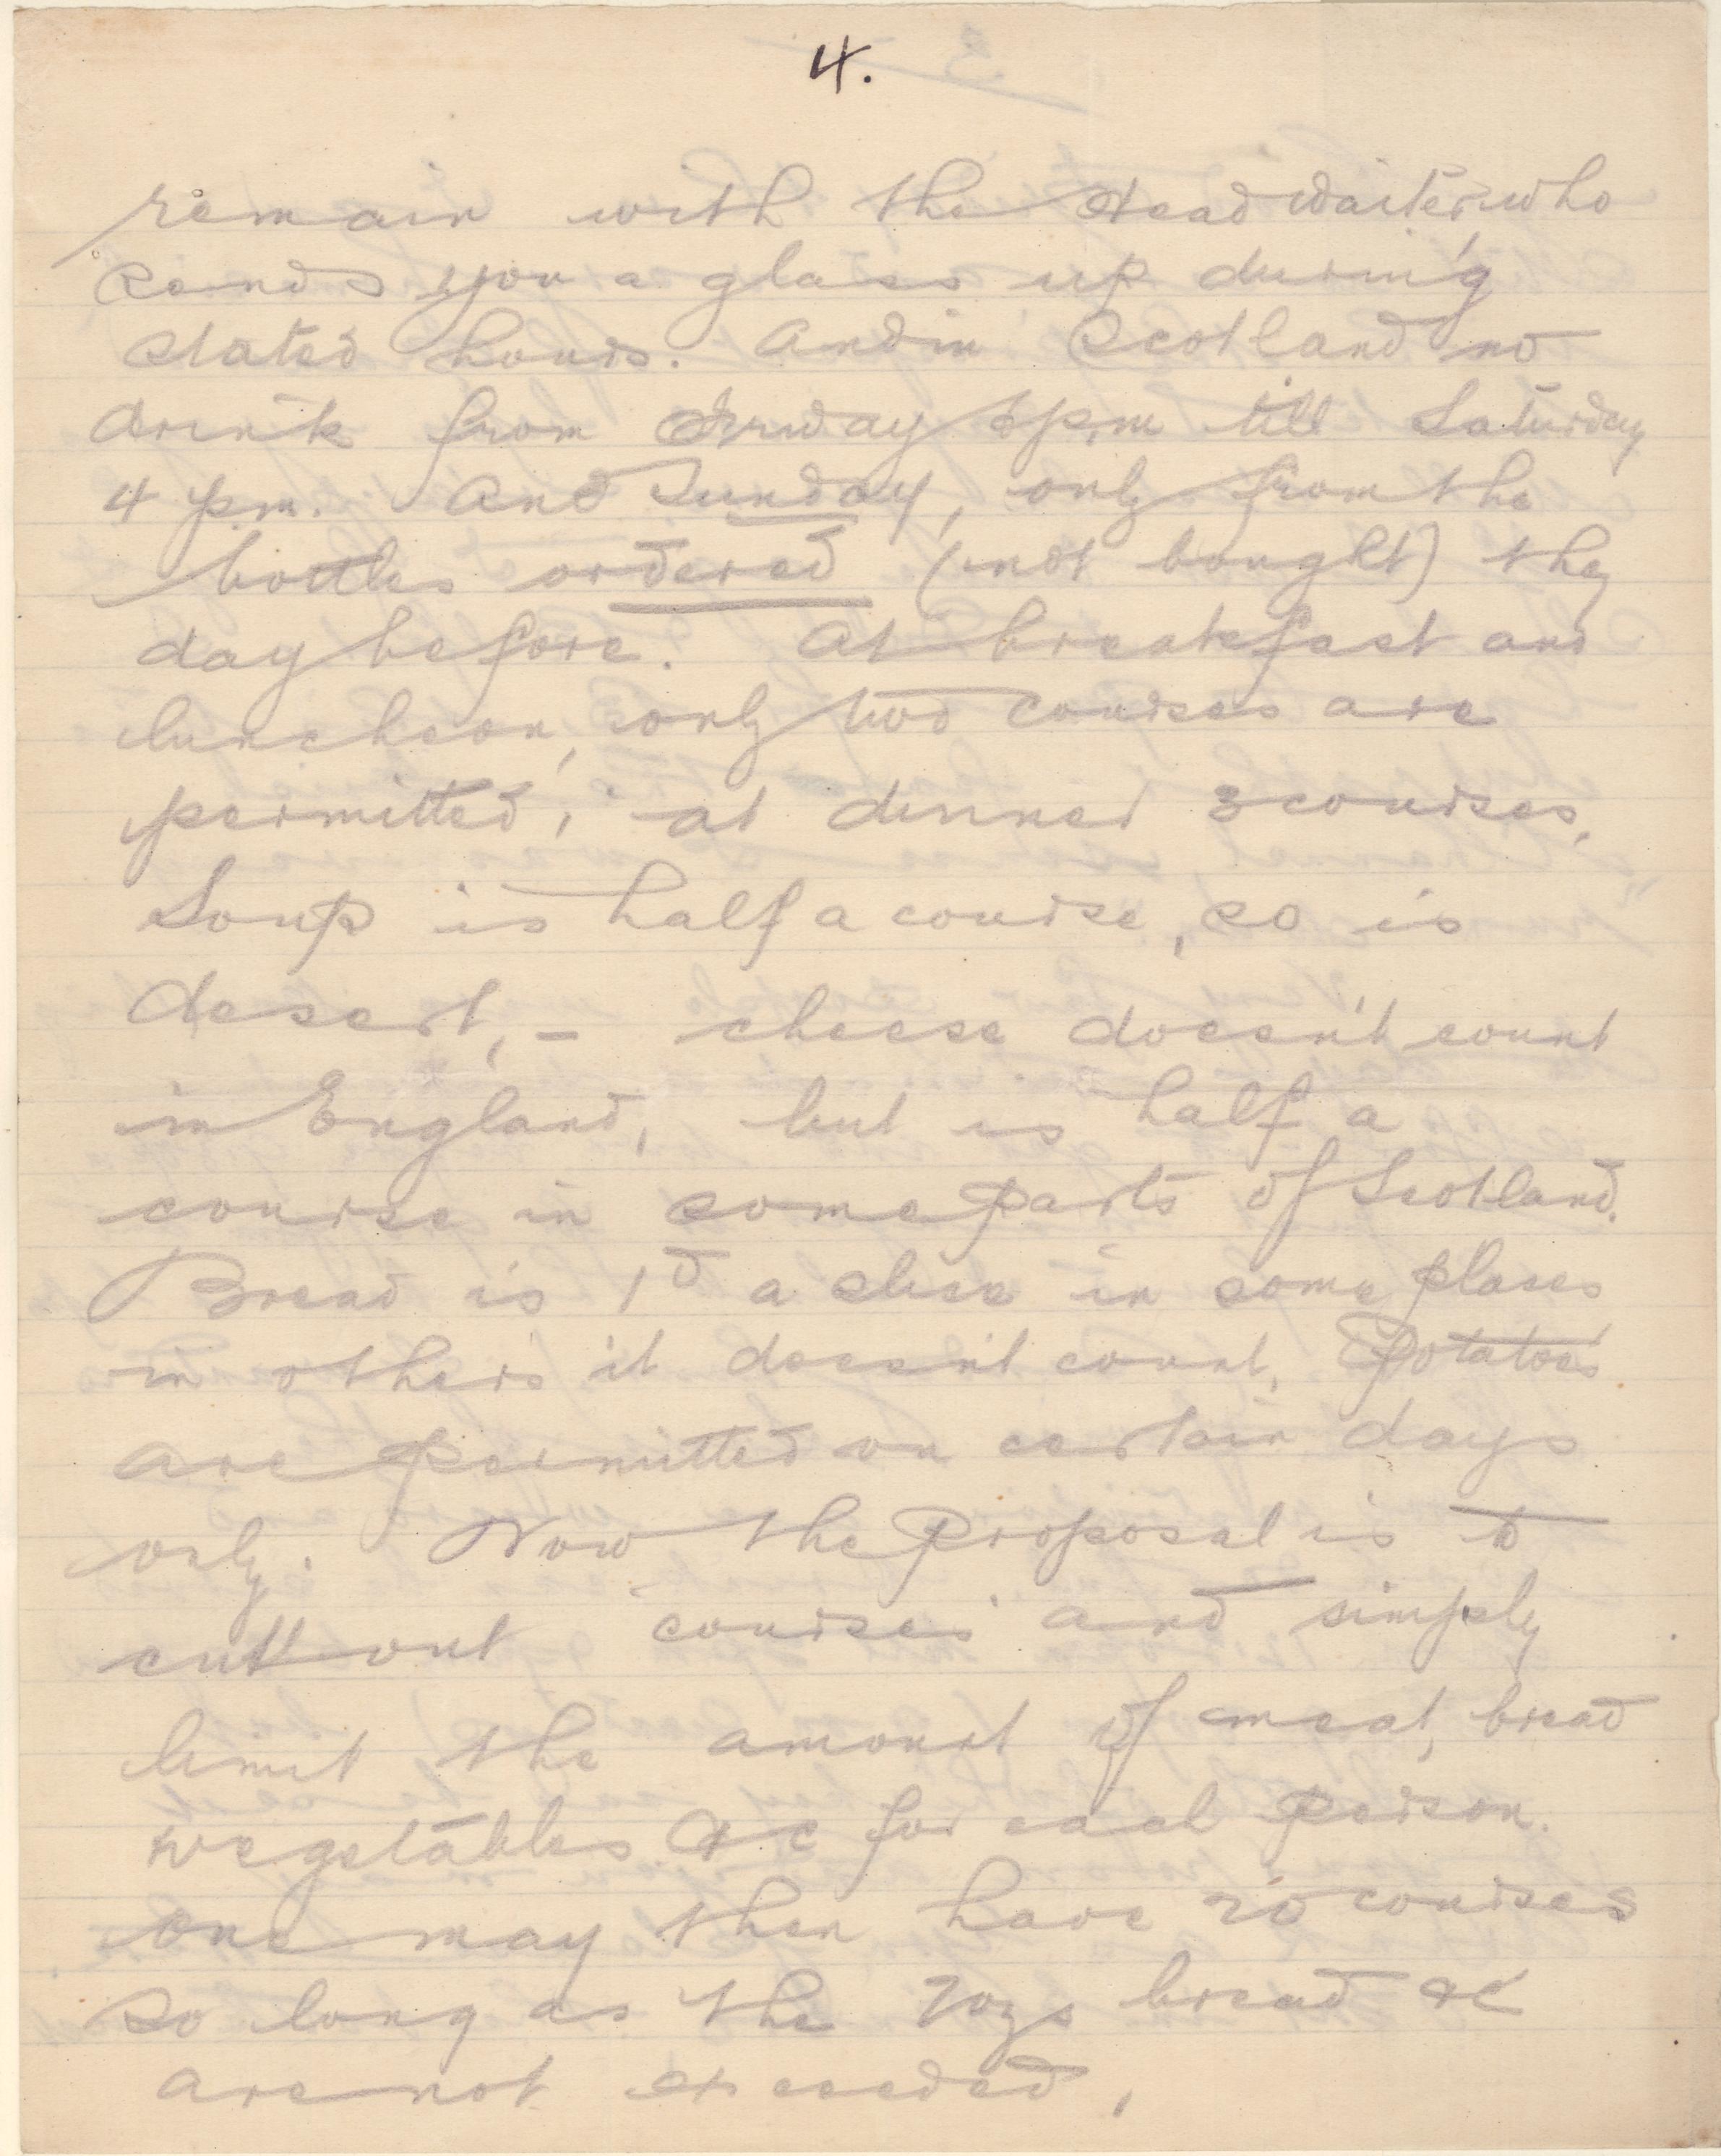 4.
remain with the Head waiter, who
sends you a glass up during
stated hours. And in Scotland no
drink from Friday pm till Saturday
4 p.m. And Sunday, only from the
bottles ordered (not bought) the
day before. At breakfast and
luncheon, only two courses are
permitted; at dinner 3 courses.
Soup is half a course, so is
desert, – cheese doesn't count
in England, but is half a
course in some parts of Scotland.
Bread is 1d a slice in some places
in others it doesn't count. Potatoes
are permitted on certain days
only. Now the proposal is to
cutt out 'courses' and simply
limit the amount of meat, bread
vegetables &c for each person.
one may then have 20 courses
so long as the ozs bread &c
are not exceeded,